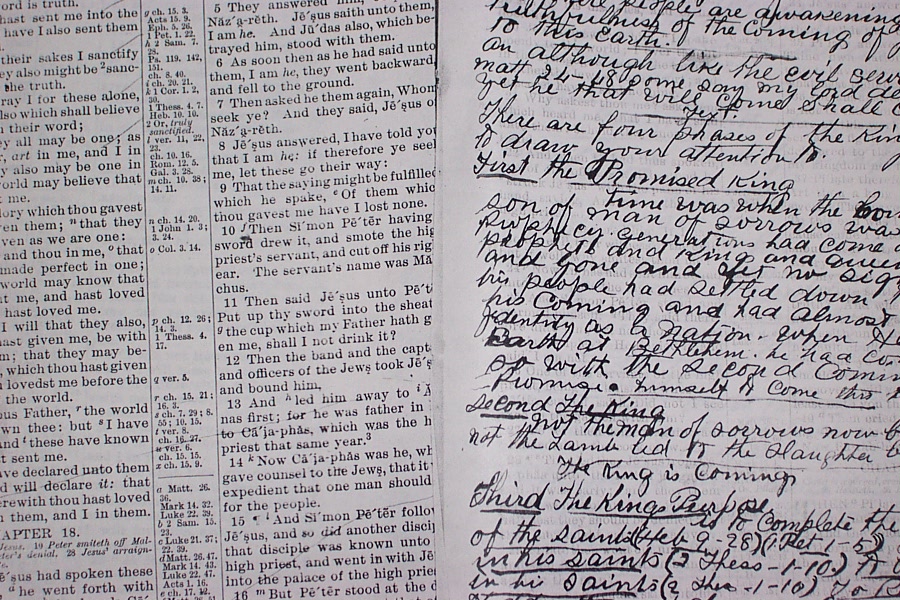 ord is truth.
hast sent me into the
have I also sent them
their sakes I sanctify
ey also might be sanc-
the truth.
ray I for these alone,
lso which shall believe
their word;
ey all may be one; as
, art in me, and I in
y also may be one in
orld may believe that
me.
lory which thou gavest
en them; that they
ven as we are one:
and thou in me, that
made perfect in one;
world may know that
t me, and hast loved
hast loved me.
I will that they also,
ast given me, be with
m; that they may be-
, which thou hast given
lovedst me before the
the world.
ous Father, the world
wn thee: but I have
nd these have known
t sent me.
ave declared unto them
d will declare it: that
erewith thou hast loved
them, and I in them.
APTER 18.
Jesus. 10 Peter smiteth off Mal-
ter's denial. 28 Jesus' arraign-
ē'ṣus had spoken these
he went forth with
g ch. 15. 3.
Acts 15. 9.
Eph. 5. 26.
1 Pet. 1. 22.
h 2 Sam. 7.
28.
Ps. 119. 142,
151.
ch. 8. 40.
i ch. 20. 21.
k 1 Cor. 1. 2,
30.
1 Thess. 4. 7.
Heb. 10. 10.
2 Or, truly
sanctified.
l ver. 11, 22,
23.
ch. 10. 16.
Rom. 12. 5.
Gal. 3. 28.
m ch. 10. 38;
14. 11.
n ch. 14. 20.
1 John 1. 3;
3. 24.
o Col. 3. 14.
p ch. 12. 26;
14. 3.
1 Thess. 4.
17.
q ver. 5.
r ch. 15. 21;
16. 3.
s ch. 7. 29; 8.
55; 10. 15.
t ver. 8.
ch. 16. 27.
u ver. 6.
ch. 15. 15.
x ch. 15. 9.
a Matt. 26.
36.
Mark 14. 32.
Luke 22. 39.
b 2 Sam. 15.
23.
c Luke 21. 37;
22. 39.
d Matt. 26. 47.
Mark 14. 43.
Luke 22. 47.
Acts 1. 16.
e ch. 17. 12.
5 They answered him,
Năz'a-rĕth. Jē'ṣus saith unto them,
I am he. And Jū'das also, which be-
trayed him, stood with them.
6 As soon then as he had said unto
them, I am he, they went backward,
and fell to the ground.
7 Then asked he them again, Whom
seek ye? And they said, Jē'ṣus o
Năz'a-rĕth.
8 Jē'ṣus answered, I have told yo
that I am he: if therefore ye see
me, let these go their way:
9 That the saying might be fulfille
which he spake, Of them whic
thou gavest me have I lost none.
10 Then Sī'mon Pē'tēr having
sword drew it, and smote the hig
priest's servant, and cut off his rig
ear. The servant's name was Mă
chus.
11 Then said Jē'ṣus unto Pē't
Put up thy sword into the sheat
the cup which my Father hath g
en me, shall I not drink it?
12 Then the band and the capt
and officers of the Jews took Jē'ṣ
and bound him,
13 And led him away to
nas first; for he was father in
to Cā'ja-phăs, which was the h
priest that same year.
14 Now Cā'ja-phăs was he, wh
gave counsel to the Jews, that it
expedient that one man should
for the people.
15 And Sī'mon Pē'tēr follow
Jē'ṣus, and so did another discip
that disciple was known unto
high priest, and went in with Jē
into the palace of the high prie
16 But Pē'tēr stood at the d
people are awakening
truthfulness of the Coming of
to this Earth.
an although like the evil serv
matt 24-48 some say my lord de
yet he that will come shall c
Text.
There are four phases of the Kin
to draw your attention to.
First the Promised King
Time was when the
son of man of sorrows was
Prophecy. generations had come
prophets and King and queen
and gone and yet no sig
his people had settled down
his Coming and had almost
identity as a nation. when
Earth at Bethlehem. he had co
so with the second Comin
Promise. himself to Come
Second The King
not the man of sorrows now
not the Lamb led to the slaughter
The King is Coming
Third The Kings Purpose
is to Complete the
of the saints (Heb 9-28) (1 Pet 1-5)
in his saints (2 Thess-1-10)
in his saints (2 Thess-1-10) To